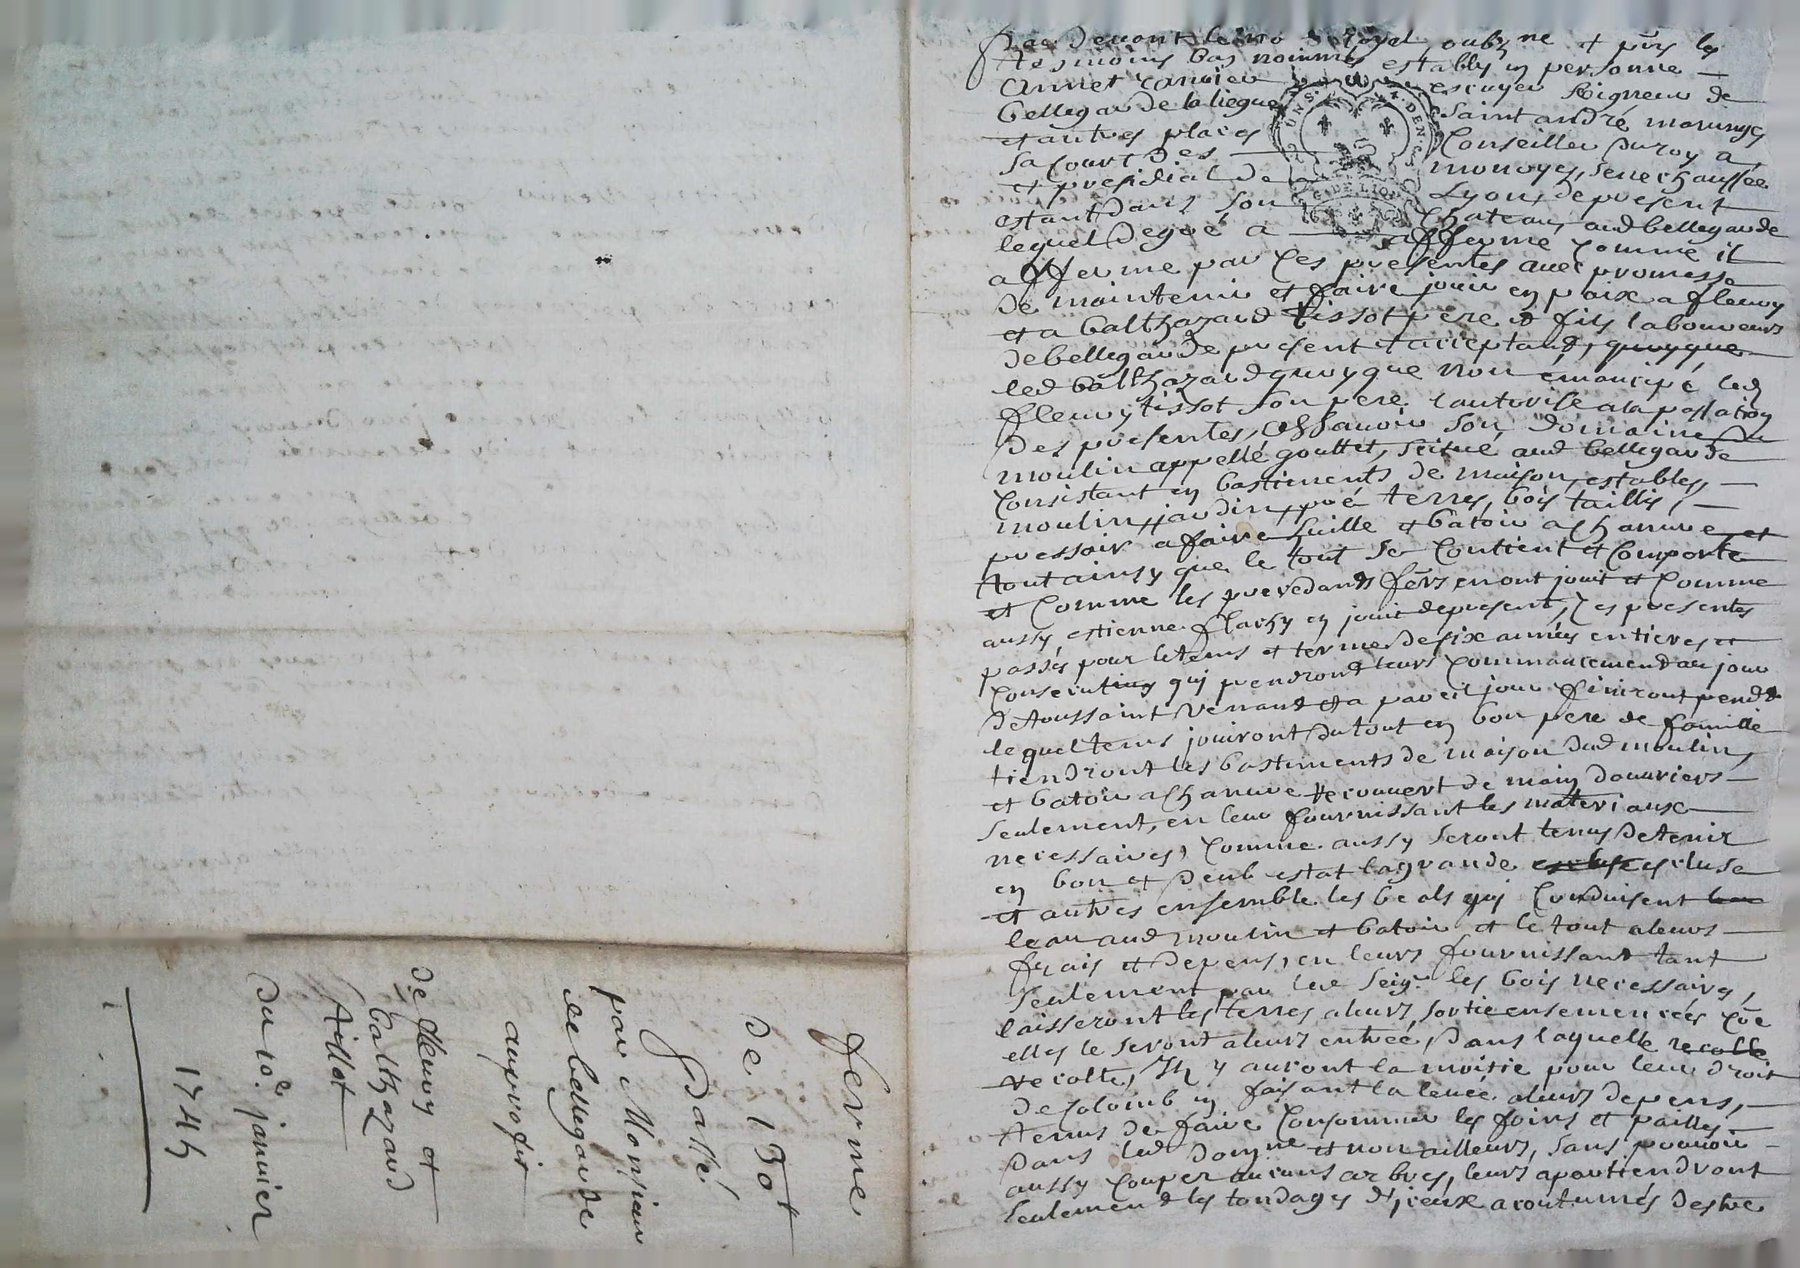 ferme
de 130ᵗ
Passé
par Monsieur
de bellegarde
au profit
de fleury et
balthazard
tissot
Du 10ᵉ janvier
1745
Par devant le no.re Royal soubz.né et pnts les
tesmoins bas nommés estably en personne
Annet Camien escuyer seigneur de
bellegarde la liegue Saint andré
et autres places Conseiller du roy a
sa Court des monoyes, senechaussée
et presidial de Lyon, de present
estant dans son Chateau aud bellegarde
lequel de gré a afferme comme il
afferme par ces presentes avec promesse
de maintenir et faire jouir en paix a fleury
et a balthazard tissot pere et fils laboureurs
de bellegarde present et acceptant, quoyque
led balthazard quoyque non emancipé led
fleury tissot son pere l'autorise a la passation
des presentes, assavoir son domaine du
moulin appellé gouttet, scitué aud bellegarde
Consistant en bastiments de maison, estables,
moulin, jardin, pré terres, bois taillis,
pressoir a faire huille et batoir a chanvre et
tout ainsy que le tout se Contient et Comporte
et comme les precedants fers en ont jouit et comme
aussy estienne flachy en jouit de present, Ces presentes
passés pour le tems et terme de six années entieres et
Consecutives qui prendront leurs Commancement au jour
de toussaint venant et a pareil jour finiront pendt
lequel tems jouiront du tout en bon pere de famille
tiendront les bastiments de maison dud moulin,
et batoir a chanvre recouvert de main d'ouvriers
seulement, en leur fournissant les materiaux
necessaires, Comme aussy seront tenus de tenir
en bon et deub estat la grande escluse escluse
et autres ensemble les beals qui Conduisent
leau aud moulin et batoir et le tout a leurs
frais et depens, en leurs fournissant tant
seulement par led seigr les bois necessaires,
laisseront les terres a leurs sortie ensemencées Coe
elles le seront a leurs entrée, Dans laquelle recolte
recolte, Ils y auront la moitie pour leur droit
de colomb en faisant la levée a leurs depens,
tenus de faire Consommer les foins et pailles
dans led domne et non ailleurs, sans pouvoir
aussy Couper aucuns arbres, leurs apartiendront
seulement les tondages d'iceux acoutumés destre